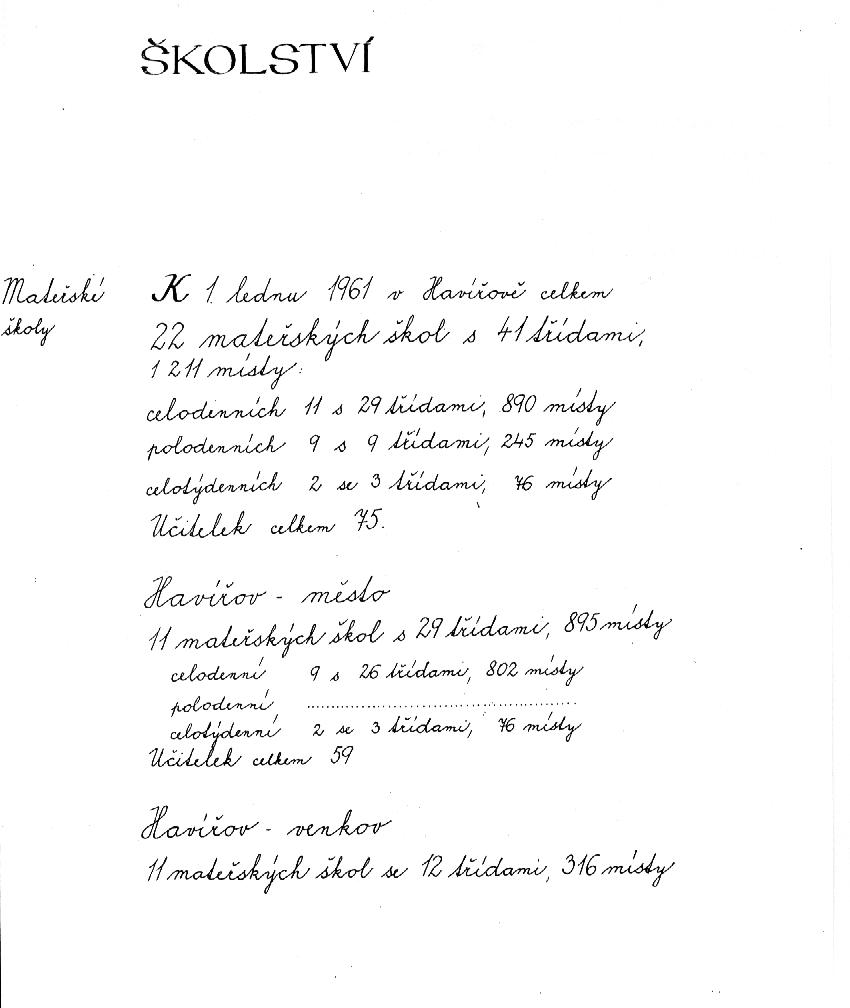 ŠKOLSTVÍ
Mateřské
školy
K 1. lednu 1961 v Havířově celkem
22 mateřských škol s 41 třídami,
1 211 místy:
celodenních 11 s 29 třídami, 890 místy
polodenních 9 s 9 třídami, 245 místy
celotýdenních 2 se 3 třídami, 76 místy
Učitelek celkem 75.
Havířov - město
11 mateřských škol s 29 třídami, 895 místy
celodenní 9 s 26 třídami, 802 místy
polodenní ........................................
celotýdenní 2 se 3 třídami, 76 místy
Učitelek celkem 59
Havířov - venkov
11 mateřských škol se 12 třídami, 316 místy